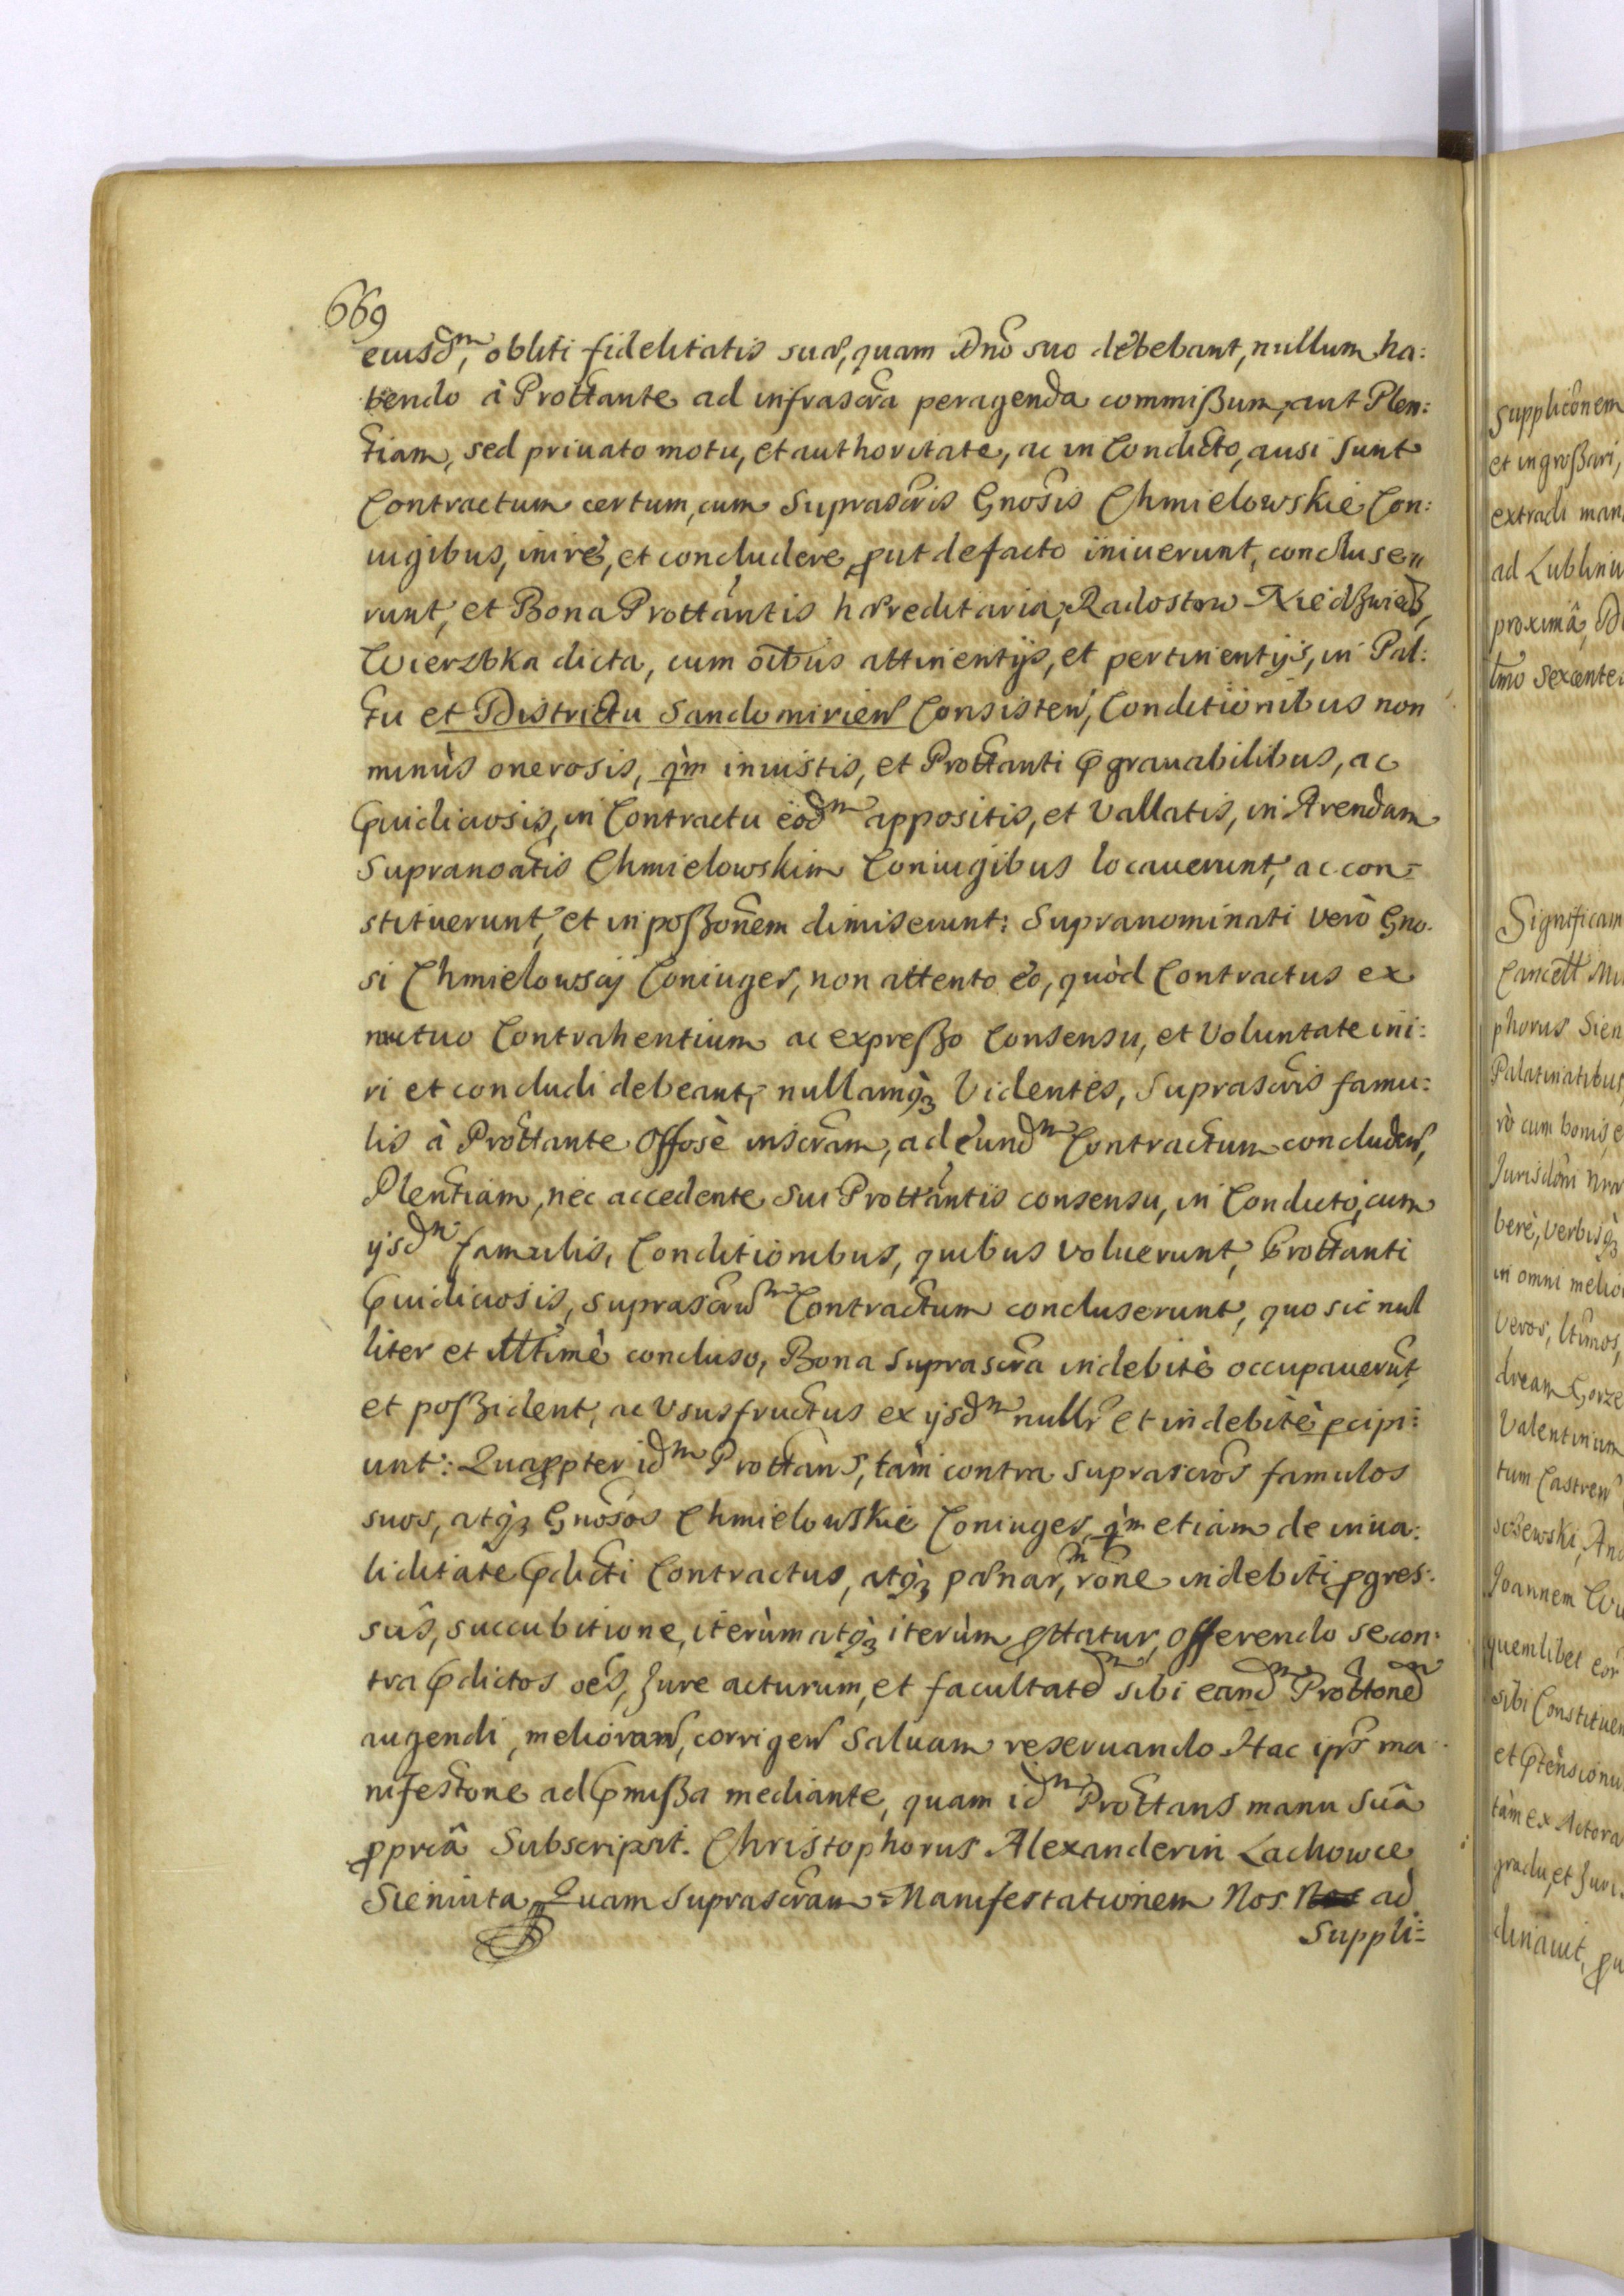 669
eiusdm, obliti fidelitatis suæ, quam Dno suo debebant, nullum ha:
bendo à Prottante ad infrascra peragenda commißum, aut Plen:
tiam, sed priuato motu, et authoritate, ac in Condicto, ausi sunt
Contractum certum, cum Suprascris Gnosis Chmielowskie Con:
iugibus, inire, et concludere, put defacto iniuerunt, concluse:
runt, et Bona Prottantis hæreditaria, Radostow Niedzwiedz,
Wierzbka dicta, cum oibus attinentijs, et pertinentijs, in Pal:
tu et Districtu Sandomirien Consisten, Conditionibus non
minùs onerosis, qm iniustis, et Prottanti pgrauabilibus, ac
Puidiciosis, in Contractu eodm appositis, et Vallatis, in Arendam
Supranoatis Chmielowskim Coniugibus locauerunt, ac con:
stituerunt, et in poßonem dimiserunt: Supranominati verò Gno.
si Chmielowscy Coniuges, non attento eo, quòd Contractus ex
mutuo Contrahentium ac expreßo Consensu, et Voluntate ini:
ri et concludi debeant, nullamq3 Videntes, Suprascris famu:
lis à Prottante Offosè inscram, ad eundm Contractum concluden,
Plentiam, nec accedente sui Prottantis consensu, in Condicto, cum
ijsdm famulis, Conditionibus, quibus voluerunt, Prottanti
Puidiciosis, suprascrum Contractum concluserunt, quo sic nul
liter et Illtimè concluso, Bona suprascra indebitè occupauerut,
et poßident, ac Vsusfructus ex ijsdm nullr et indebitè pcipi:
unt: Quappter idm Prottans, tàm contra suprascros famulos
suos, atq3 Gnosos Chmielowskie Coniuges, qm etiam de inua:
liditate pdicti Contractus, atq3 pænar, rone indebiti pgres:
sûs, succubitione, iterùm atq3 iterùm pttatur, offerendo se con:
tra pdictos oes, Jure acturum, et facultatem sibi eandm Prottonem
augendi, melioran, corrigen Saluam reseruando Hac ipsa ma
nifestone ad pmißa mediante, quam idm Prottans manu suâ
ppriâ Subscripsit. Christophorus Alexander in Lachowce
Sieniuta, Quam suprascram Manifestationem Nos ad
Suppli:
supplicônem
et ingroßari,
ad Lublin
proximâ,
Significam
Cancell
phorus Sien
Palatinatibus
rò cum bonis,
berè, verbisq3
in omni melio
Veros, ltimos,
dream Gorze
Valentinum
tum Castren
Joannem
quemlibet
sibi Constituen
tàm ex Actora
gradu, et Juri
dinauit,